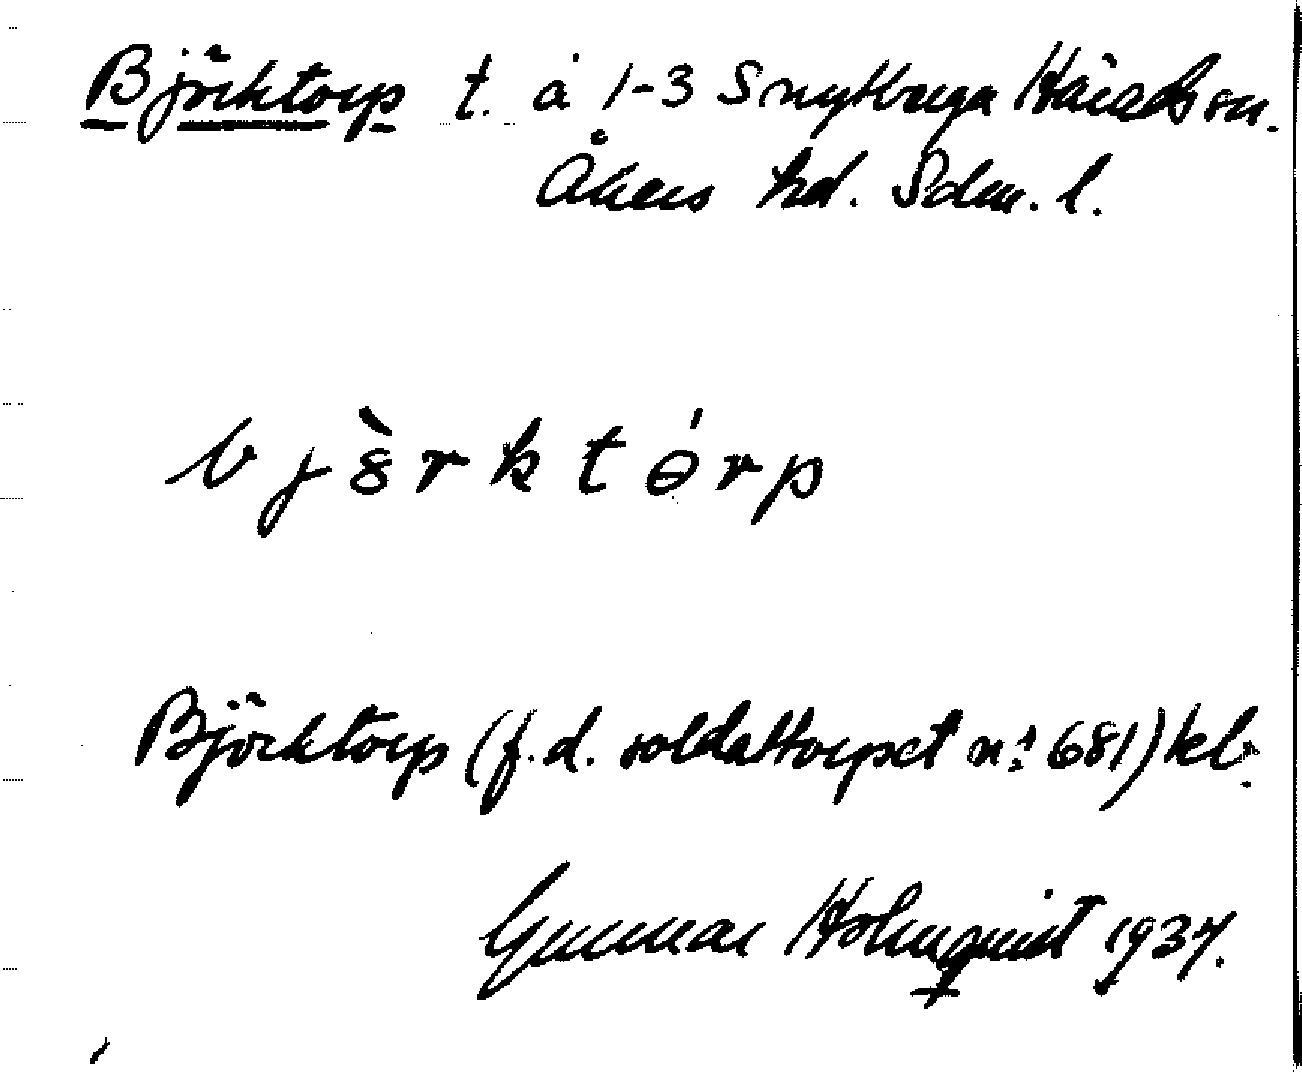 Björktorp t. å 1-3 Snytbruga Härads sn.
Åkers hd. Sdm. l.
bjèrktórp
Björktorp (f.d. soldattorpet nr 681) kbl.
Gunnar Holmquist 1937.